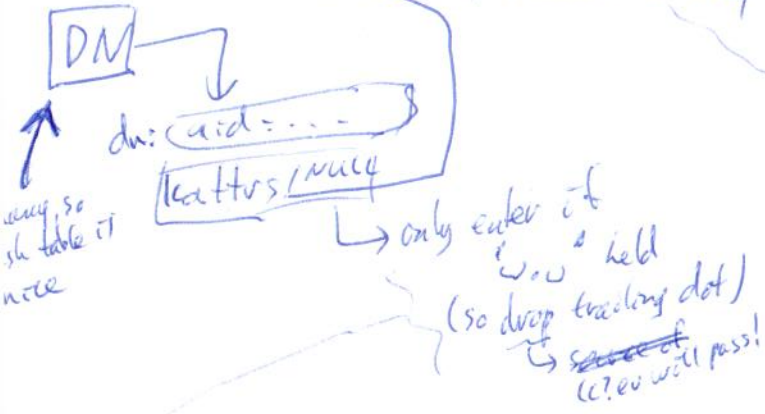 DN
dn: uid=....
kattrs/NULL
so
sh table it
nice
only enter if
held
(so drop trailing dot)
will pass!